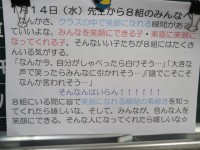 1月14日（水）先生から8組のみんなへ
なんかさ、クラスの中で笑顔になれる瞬間がある
っていいよな。みんなを笑顔にできる子・素直に笑顔に
なってくれる子。そんないい子たちが8組にはたくさ
んいる気がする。
「なんか今、自分がしゃべったら白けそう…」「大きな
声で笑ったらみんなに引かれそう…」「陰でこそこそ
なんか言われそう…」
そんなんはいらん！！！！！！
8組にいる間に皆で笑顔になれる瞬間の素晴さを知って
くれたら嬉しいな。そして、みんなが、色んな人を
笑顔にできる、そんな人になってくれたら嬉しいな☆